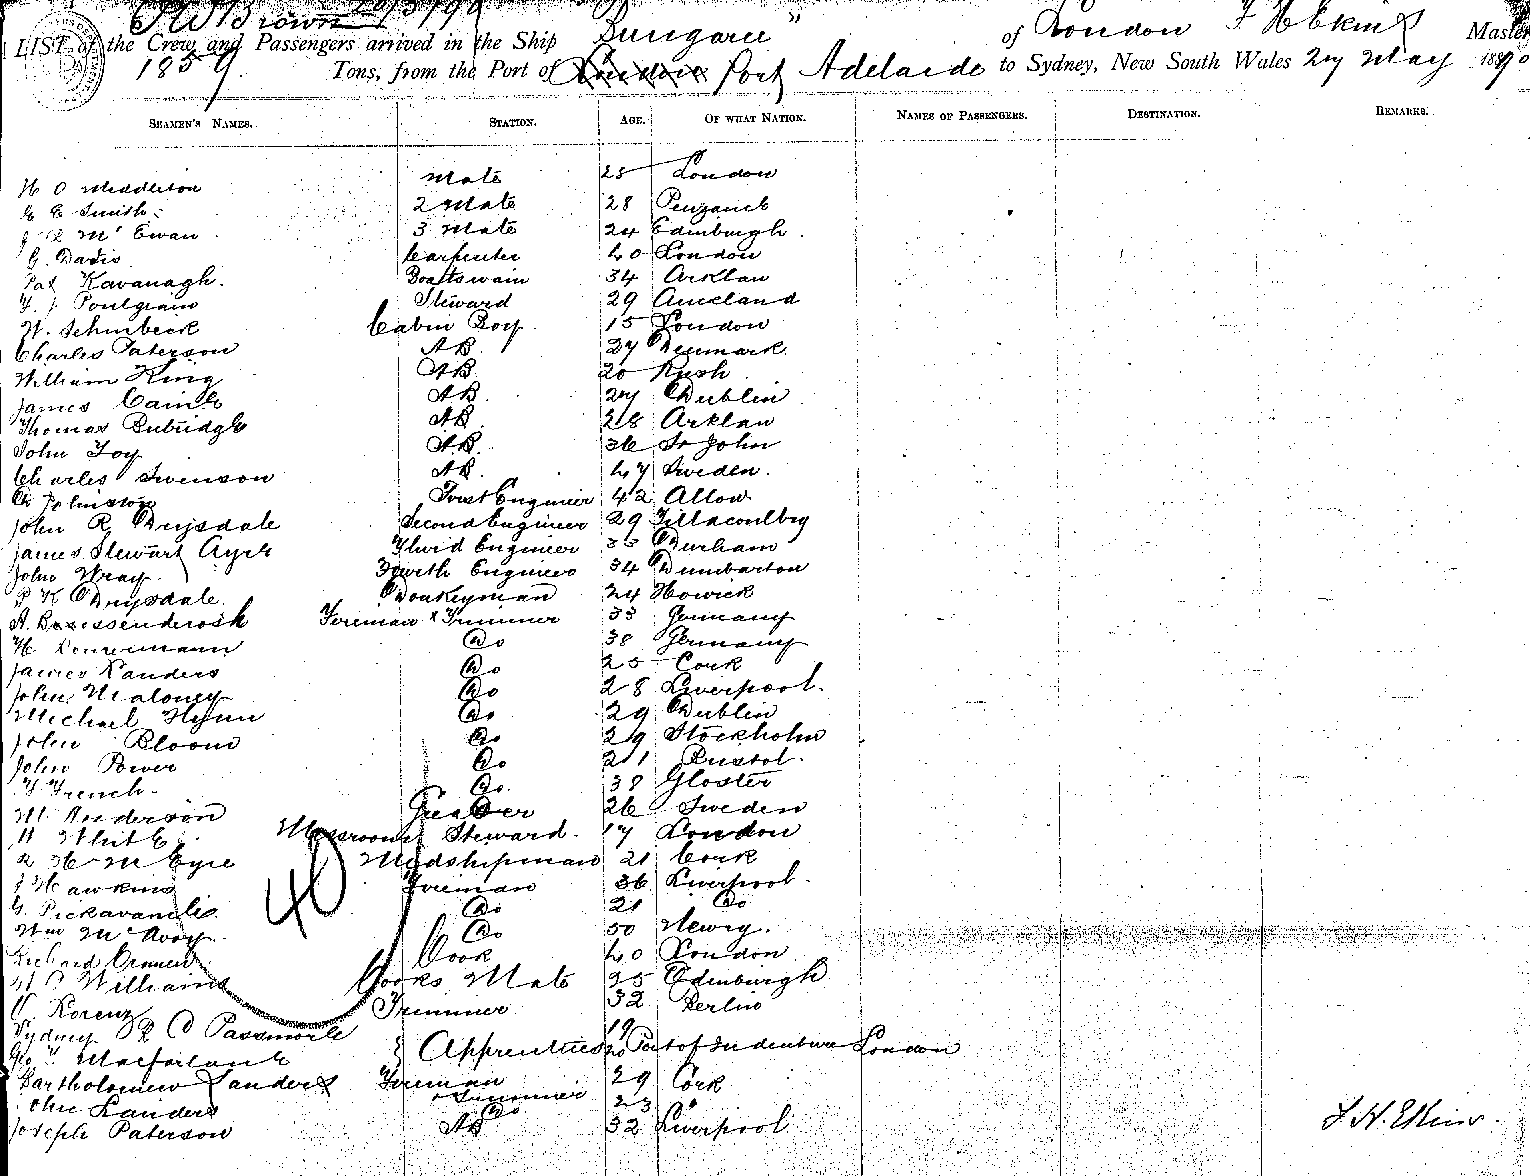 LIST of the Crew and Passengers arrived in the Ship "Bungaree" of London F H Ekins Master
1859 Tons, from the Port of London Port Adelaide to Sydney, New South Wales 27 May 1890
SEAMEN'S NAMES. STATION. AGE. OF WHAT NATION. NAMES OF PASSENGERS. DESTINATION. REMARKS.
H O Middleton Mate 25 London
G E Smith 2 Mate 28 Penzance
J R Mc Ewan 3 Mate 24 Edinburgh
G. Davis Carpenter 40 London
Pat Kavanagh. Boatswain 34 Arklow
F. J Poulgrain Steward 29 Auckland
W. Schnibeck Cabin Boy 15 London
Charles Paterson AB 27 Denmark
William King AB 20 Rush
James Caine AB 27 Dublin
Thomas AB 28 Arklow
John Foy AB 36 St John
Charles Swenson AB 47 Sweden.
Johnston First Engineer 42 Alloa
John R Drysdale Second Engineer 29
James Stewart Ayre Third Engineer 33 Durham
John Wray Fourth Engineer 34 Dumbarton
P K Drysdale Donkeyman 24 Howick
A. Fireman & Trimmer 33 Germany
H Do 38 Germany
James Landers Do 25 Cork
John Maloney Do 28 Liverpool.
Michael Flynn Do 29 Dublin
John Bloom Do 29 Stockholm
John Power Do 21 Bristol.
F French Do 38 Gloster
M Anderson Greaser 26 Sweden
H White Messroom Steward 17 London
H M Eyre Midshipman 21 Cork
J Hawkins Fireman 36 Liverpool
G. Pickavance Do 21 Do
Wm McAvoy Do 50 Newry.
Richard Cook 40 London
Williams Cooks Mate 25 Edinburgh
Korenz Trimmer 32 Berlin
Sydney R D Passmore 19
Geo F Macfarlane } Apprentices 20 Port of Indenture London
Bartholomew Landers Fireman 29 Cork
& Trimmer
Landers Do 23 "
Joseph Paterson AB 32 Liverpool
40
F. H. Ekins